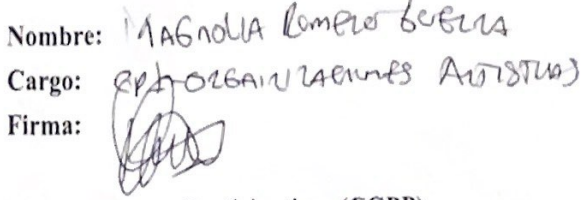 Nombre: MAGNOLIA ROMERO GUERRA
Cargo: ORGANIZACIONES ARTISTICAS
Firma: